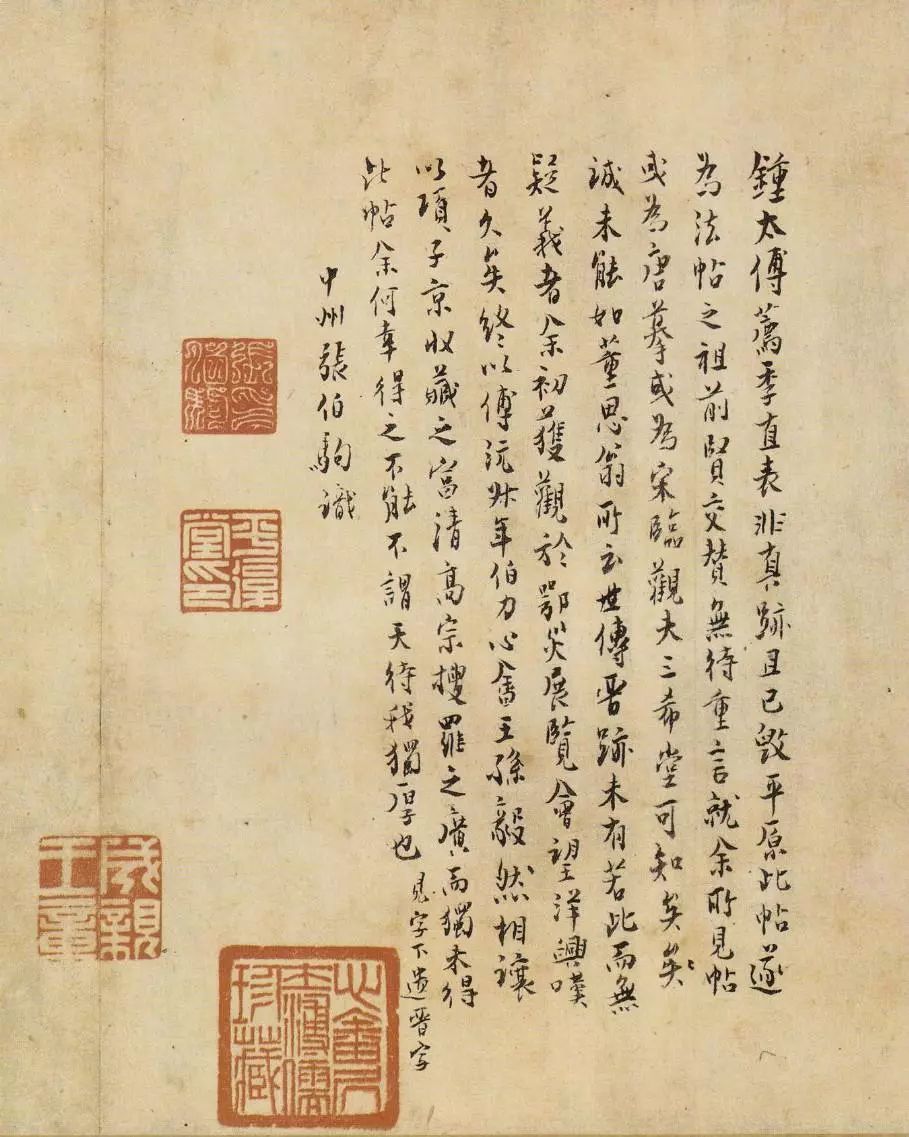 鍾太傅薦季直表非真跡且已毀平原此帖遂
為法帖之祖前賢交賛無待重言就余所見帖
或為唐摹或為宋臨觀夫三希堂可知矣矣
誠未能如董思翁所云世傳晋跡未有若此而無
疑義者余初獲觀於鄂災展覽會望洋興嘆
者久矣終以傅沅叔年伯力心畬王孫毅然相讓
以項子京收蔵之富清高宗搜羅之廣而獨未得
此帖余何幸得之不能不謂天待我獨厚也 見字下遺晋字
中州張伯駒識
張伯駒
平復堂印
成親王章
心畬居士溥儒珍藏